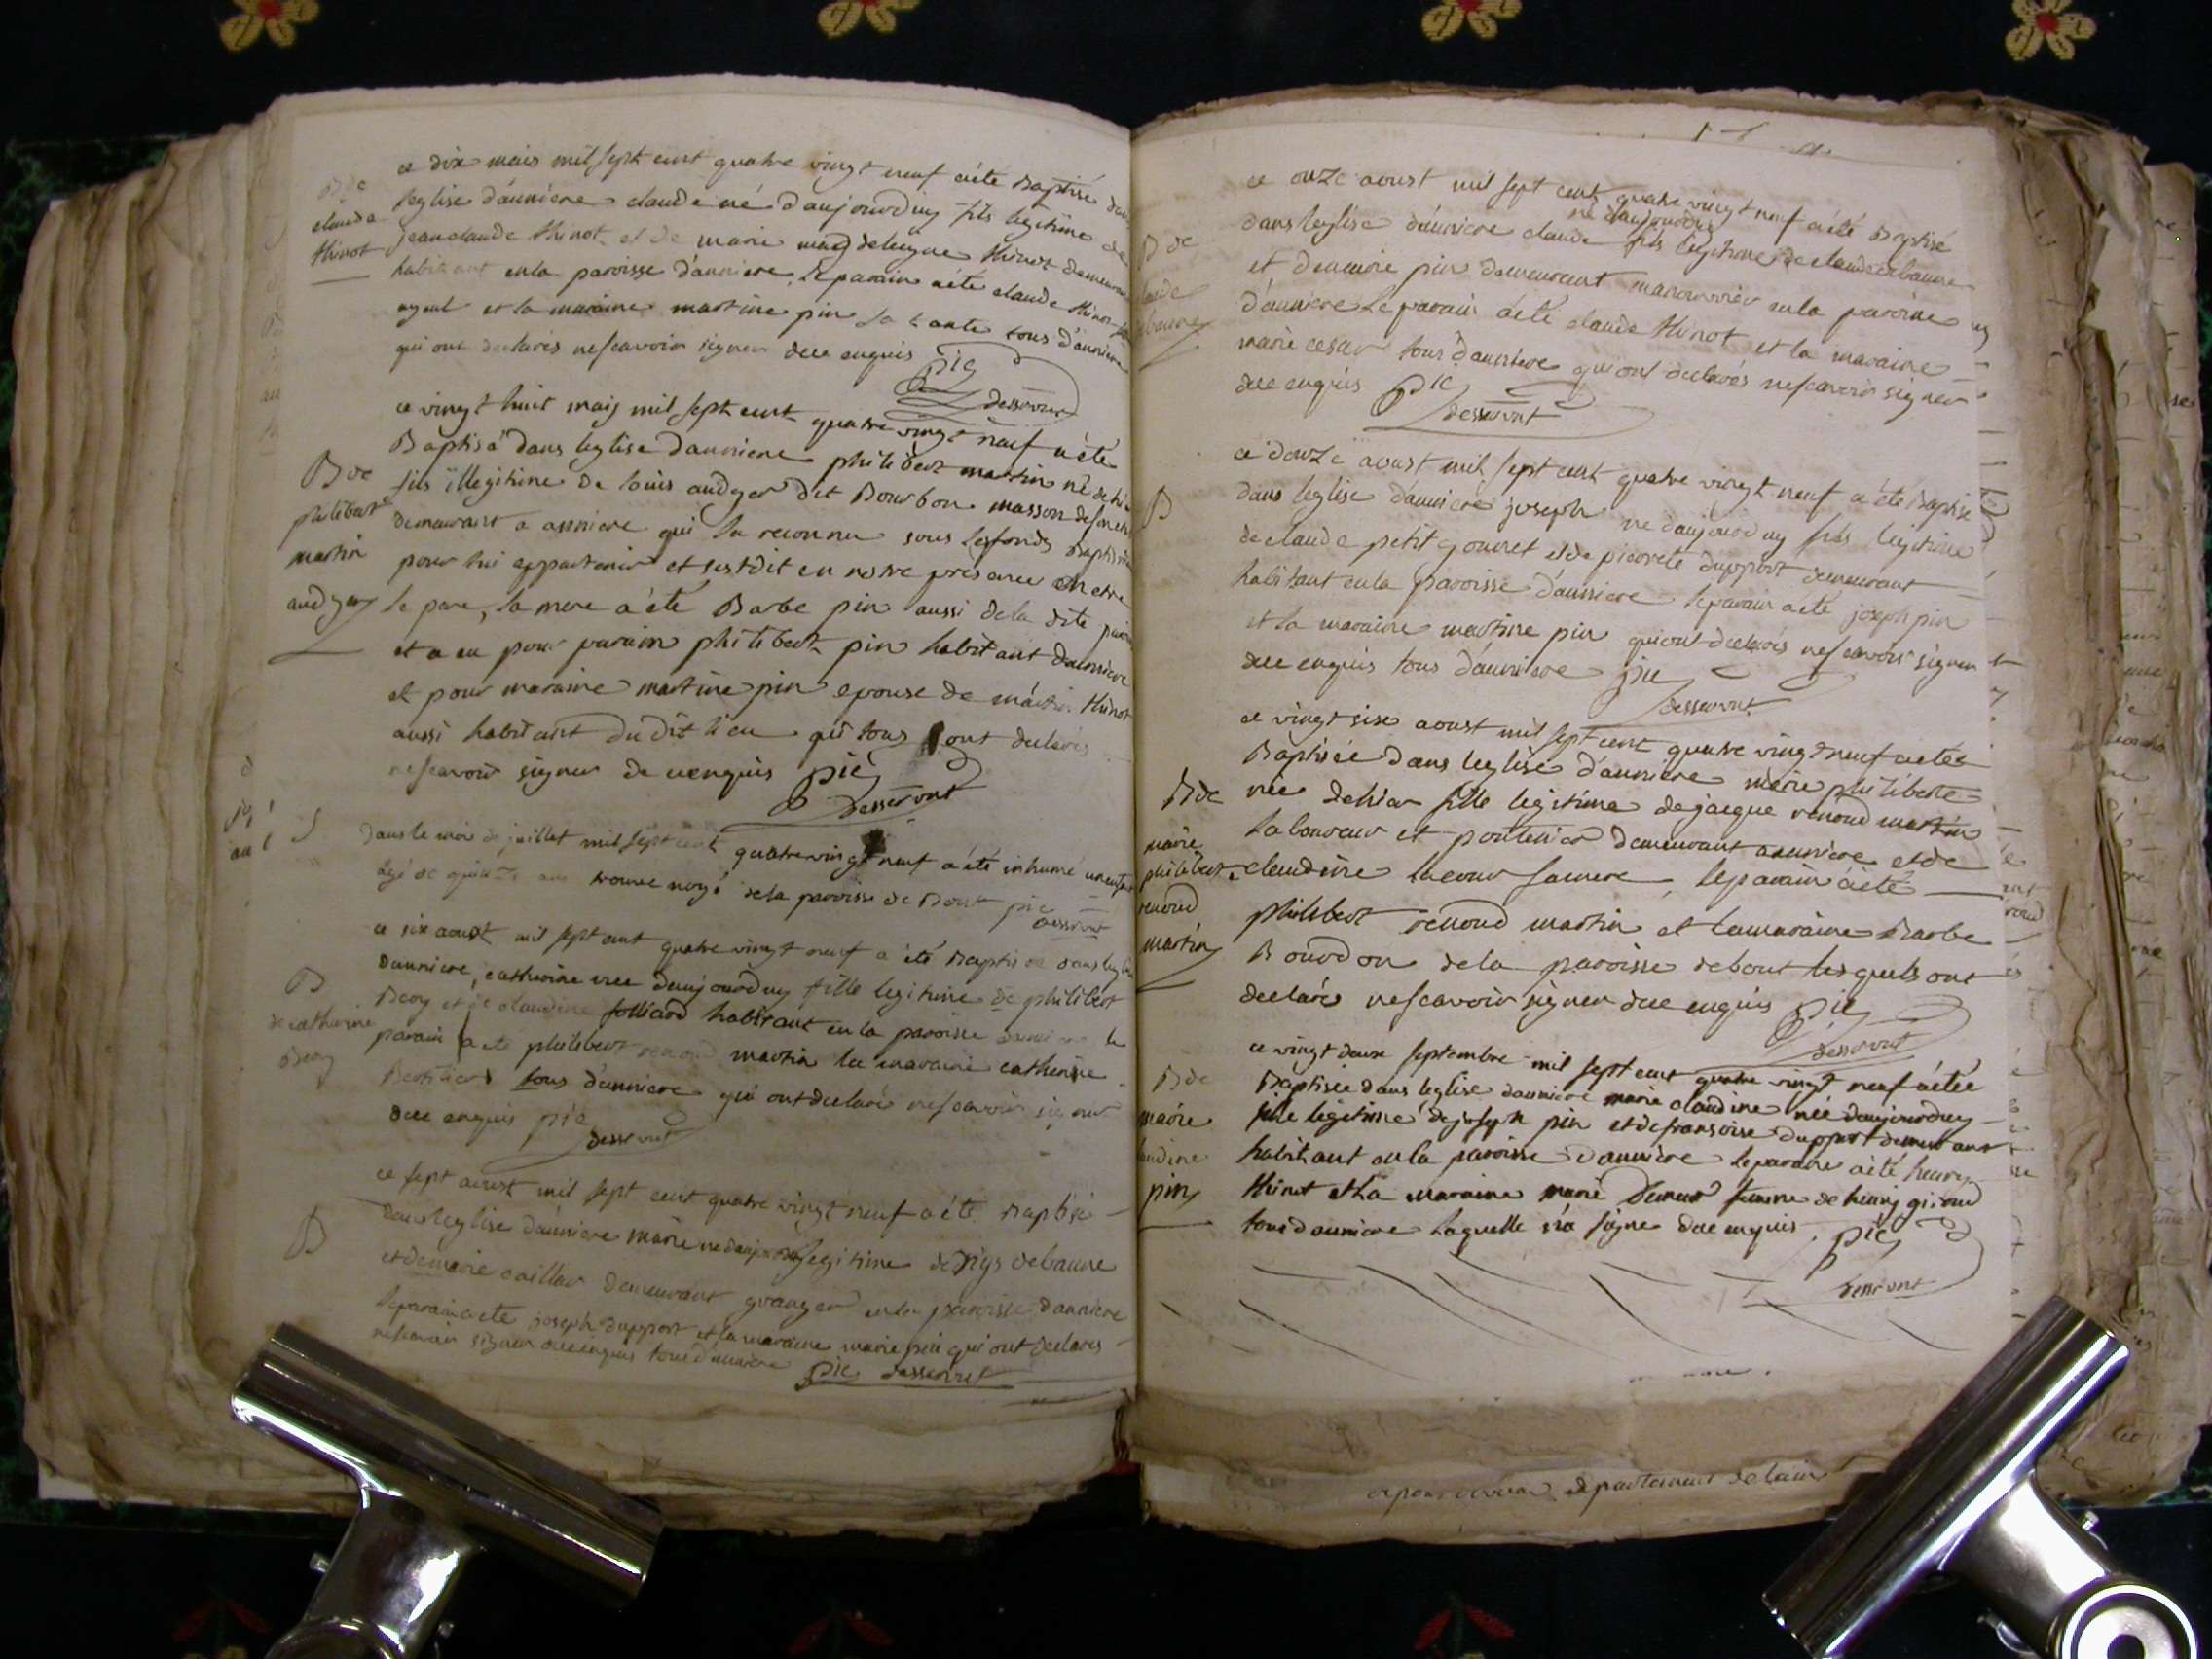 B de
claude
thinot
ce dix mais mil sept cent quatre vingt neuf a été Baptisé dans
leglise d'auniere claude né d'aujourduy fils legitime de
jean claude thinot et de marie magdeleigne thinot demeurant
habitant en la paroisse d'auniere, le parain a été claude thinot
ayeul et la maraine martine pin sa tante tous d'auniere
qui ont declarés ne scavoir signer de ce enquis Pic
desservant
B de
philibert
martin
audger
ce vingt huit mais mil sept cent quatre vingt neuf a été
Baptisé dans leglise d'auniere philibert martin né de hier
fils illegitime de louis audger dit Bourbon masson de
demeurant a anniere qui la reconnu sous les fonds
pour lui appartenir et sest dit en nostre presence en etre
le pere, la mere a été Barbe pin aussi de la dite
et a eu pour parain philibert pin habitant d'auniere
et pour maraine martine pin epouse de martin thinot
aussi habitant du dit lieu qui tous ont declarés
ne scavoir signer de ce enquis Pic
desservant
S
dans le mois de juillet mil sept cent quatre vingt neuf a été inhumé
agé de quinze ans trouvé noyé de la paroisse de Bout pic
desservant
B
de catherine
Bery
ce six aoust mil sept cent quatre vingt neuf a été Baptisée dans leglise
d'auniere, catherine née d'aujourduy fille legitime de philibert
Bery et de claudine folliard habitant en la paroisse d'auniere le
parain a été philibert renoud martin la maraine catherine
tous d'auniere qui ont declaré ne scavoir signer
de ce enquis pic
desservant
B
ce sept aoust mil sept cent quatre vingt neuf a été Baptisé
dans leglise d'auniere marie legitime de denys debaune
et de marie caillar demeurant granger en la paroisse d'auniere
le parain a été joseph dupport et la maraine marie pin qui ont declarés
ne scavoir signer de ce enquis tous d'auniere Pic desservant
B de
claude
debaune
ce onze aoust mil sept cent quatre vingt neuf a été Baptisé
né d'aujourduy
dans leglise d'auniere claude fils legitime de claude debaune
et de marie pin demeurant manouvrier en la paroisse
d'auniere le parain a été claude thinot et la maraine
marie cesar tous d'auniere qui ont declarés ne scavoir signer
de ce enquis Pic
desservant
B
ce douze aoust mil sept cent quatre vingt neuf a été Baptisé
dans leglise d'auniere joseph né d'aujourduy fils legitime
de claude petit gouret et de pierrete dupport demeurant
habitant en la paroisse d'auniere le parain a été joseph pin
et la maraine martine pin qui ont declarés ne scavoir signer
de ce enquis tous d'auniere pic
desservant
B de
marie
philiberte
renoud
martin
ce vingt six aoust mil sept cent quatre vingt neuf a été
Baptisée dans leglise d'auniere marie philiberte
née de hier fille legitime de jacque renoud martin
laboureur et pontenier demeurant a auniere et de
claudine lacour le parain a été
philibert renoud martin et la maraine Barbe
Bourdon de la paroisse de bout lesquels ont
declarés ne scavoir signer de ce enquis Pic
desservant
B de
marie
claudine
pin
ce vingt deux septembre mil sept cent quatre vingt neuf a été
Baptisée dans leglise d'auniere marie claudine née d'aujourduy
fille legitime de joseph pin et de fransoise dupport demeurant
habitant en la paroisse d'auniere le parain a été henry
thinot et la maraine marie femme de henry giroud
tous d'auniere laquelle n'a signé de ce enquis Pic
desservant
departement de lain